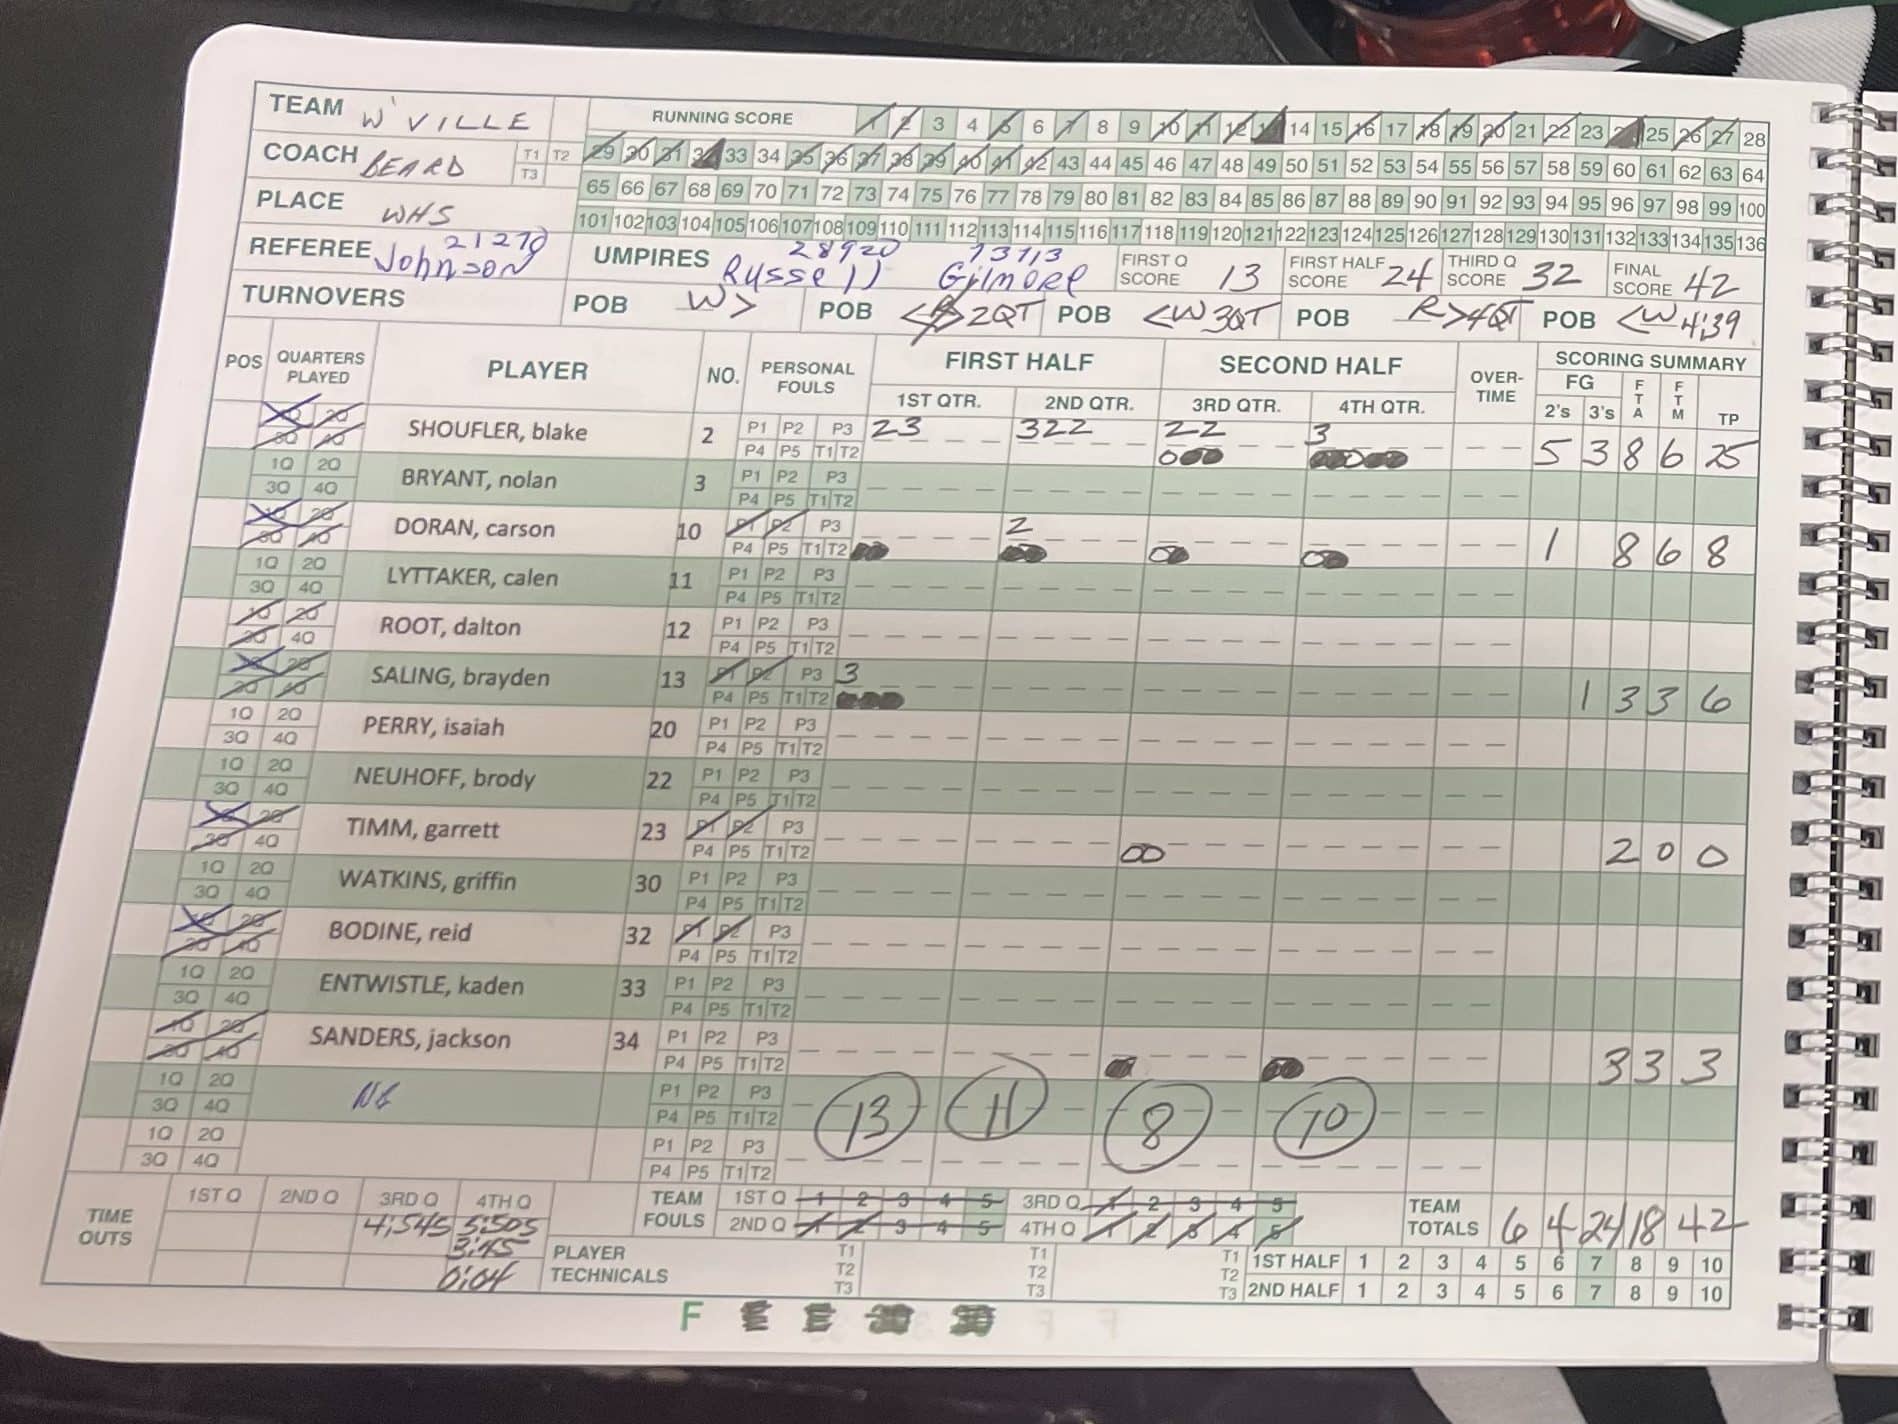 TEAM W'VILLE
RUNNING SCORE 1 2 3 4 5 6 7 8 9 10 11 12 13 14 15 16 17 18 19 20 21 22 23 24 25 26 27 28
29 30 31 32 33 34 35 36 37 38 39 40 41 42 43 44 45 46 47 48 49 50 51 52 53 54 55 56 57 58 59 60 61 62 63 64
COACH BEARD T1 T2 T3
65 66 67 68 69 70 71 72 73 74 75 76 77 78 79 80 81 82 83 84 85 86 87 88 89 90 91 92 93 94 95 96 97 98 99 100
PLACE WHS
101 102 103 104 105 106 107 108 109 110 111 112 113 114 115 116 117 118 119 120 121 122 123 124 125 126 127 128 129 130 131 132 133 134 135 136
REFEREE Johnson 21270
UMPIRES Russell 28920 Gilmore 13713
FIRST Q SCORE 13
FIRST HALF SCORE 24
THIRD Q SCORE 32
FINAL SCORE 42
TURNOVERS
POB W>
POB <R> 2QT
POB <W 3QT
POB R> 4QT
POB <W 4:39
POS QUARTERS PLAYED PLAYER NO. PERSONAL FOULS FIRST HALF SECOND HALF OVER-TIME SCORING SUMMARY
1ST QTR. 2ND QTR. 3RD QTR. 4TH QTR. FG 2's 3's FTA FTM TP
1Q 2Q SHOUFLER, blake 2 P1 P2 P3 23 322 22 3
3Q 4Q P4 P5 T1 T2 5 3 8 6 25
1Q 2Q BRYANT, nolan 3 P1 P2 P3
3Q 4Q P4 P5 T1 T2
1Q 2Q DORAN, carson 10 P1 P2 P3 2
3Q 4Q P4 P5 T1 T2 1 8 6 8
1Q 2Q LYTTAKER, calen 11 P1 P2 P3
3Q 4Q P4 P5 T1 T2
1Q 2Q ROOT, dalton 12 P1 P2 P3
3Q 4Q P4 P5 T1 T2
1Q 2Q SALING, brayden 13 P1 P2 P3 3
3Q 4Q P4 P5 T1 T2 1 3 3 6
1Q 2Q PERRY, isaiah 20 P1 P2 P3
3Q 4Q P4 P5 T1 T2
1Q 2Q NEUHOFF, brody 22 P1 P2 P3
3Q 4Q P4 P5 T1 T2
1Q 2Q TIMM, garrett 23 P1 P2 P3
3Q 4Q P4 P5 T1 T2 2 0 0
1Q 2Q WATKINS, griffin 30 P1 P2 P3
3Q 4Q P4 P5 T1 T2
1Q 2Q BODINE, reid 32 P1 P2 P3
3Q 4Q P4 P5 T1 T2
1Q 2Q ENTWISTLE, kaden 33 P1 P2 P3
3Q 4Q P4 P5 T1 T2
1Q 2Q SANDERS, jackson 34 P1 P2 P3
3Q 4Q P4 P5 T1 T2 3 3 3
1Q 2Q P1 P2 P3
3Q 4Q P4 P5 T1 T2 13 11 8 10
1Q 2Q P1 P2 P3
3Q 4Q P4 P5 T1 T2
TIME OUTS 1ST Q 2ND Q 3RD Q 4TH Q
4:54S 5:50S
3:45
0:04
TEAM FOULS 1ST Q 1 2 3 4 5 3RD Q 1 2 3 4 5
2ND Q 1 2 3 4 5 4TH Q 1 2 3 4 5
TEAM TOTALS 6 4 24 18 42
PLAYER TECHNICALS T1 T2 T3 T1 T2 T3 T1 T2 T3
1ST HALF 1 2 3 4 5 6 7 8 9 10
2ND HALF 1 2 3 4 5 6 7 8 9 10
F